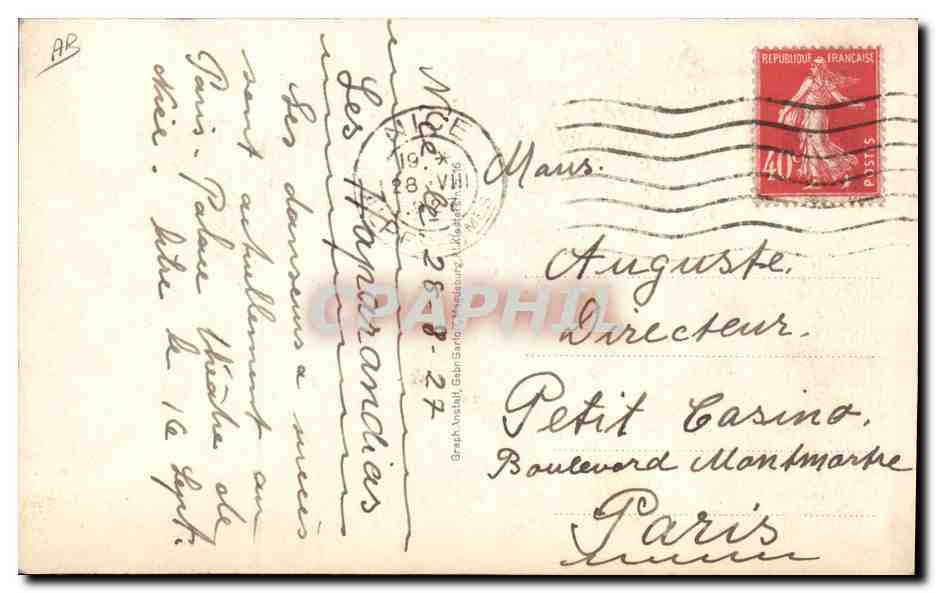 AB
Nice le 28-8-27
Les Haparandias
Les danseurs
sont actuellement au
Paris-Palace théâtre de
Nice. libre le 16 Sept.
NICE
19 *
28 VIII
REPUBLIQUE FRANÇAISE
40c
POSTES
Mons.
Auguste.
Directeur.
Petit Casino.
Boulevard Montmartre
Paris
Graph. Anstalt, Gebr. Garloff, Magdeburg,
CPAPHIL